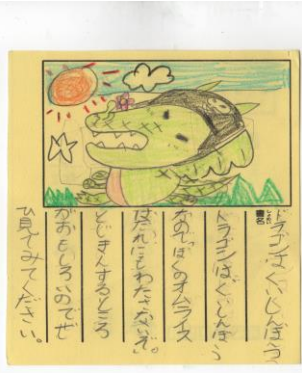 ドラゴンはくいしんぼう
しょめい
書名
ドラゴンは、くいしんぼう
なの。「ぼくのオムライス
はだれにもわたさないぞ。」
とじまんするところ
がおもしろいのでぜ
ひ見てみてください。